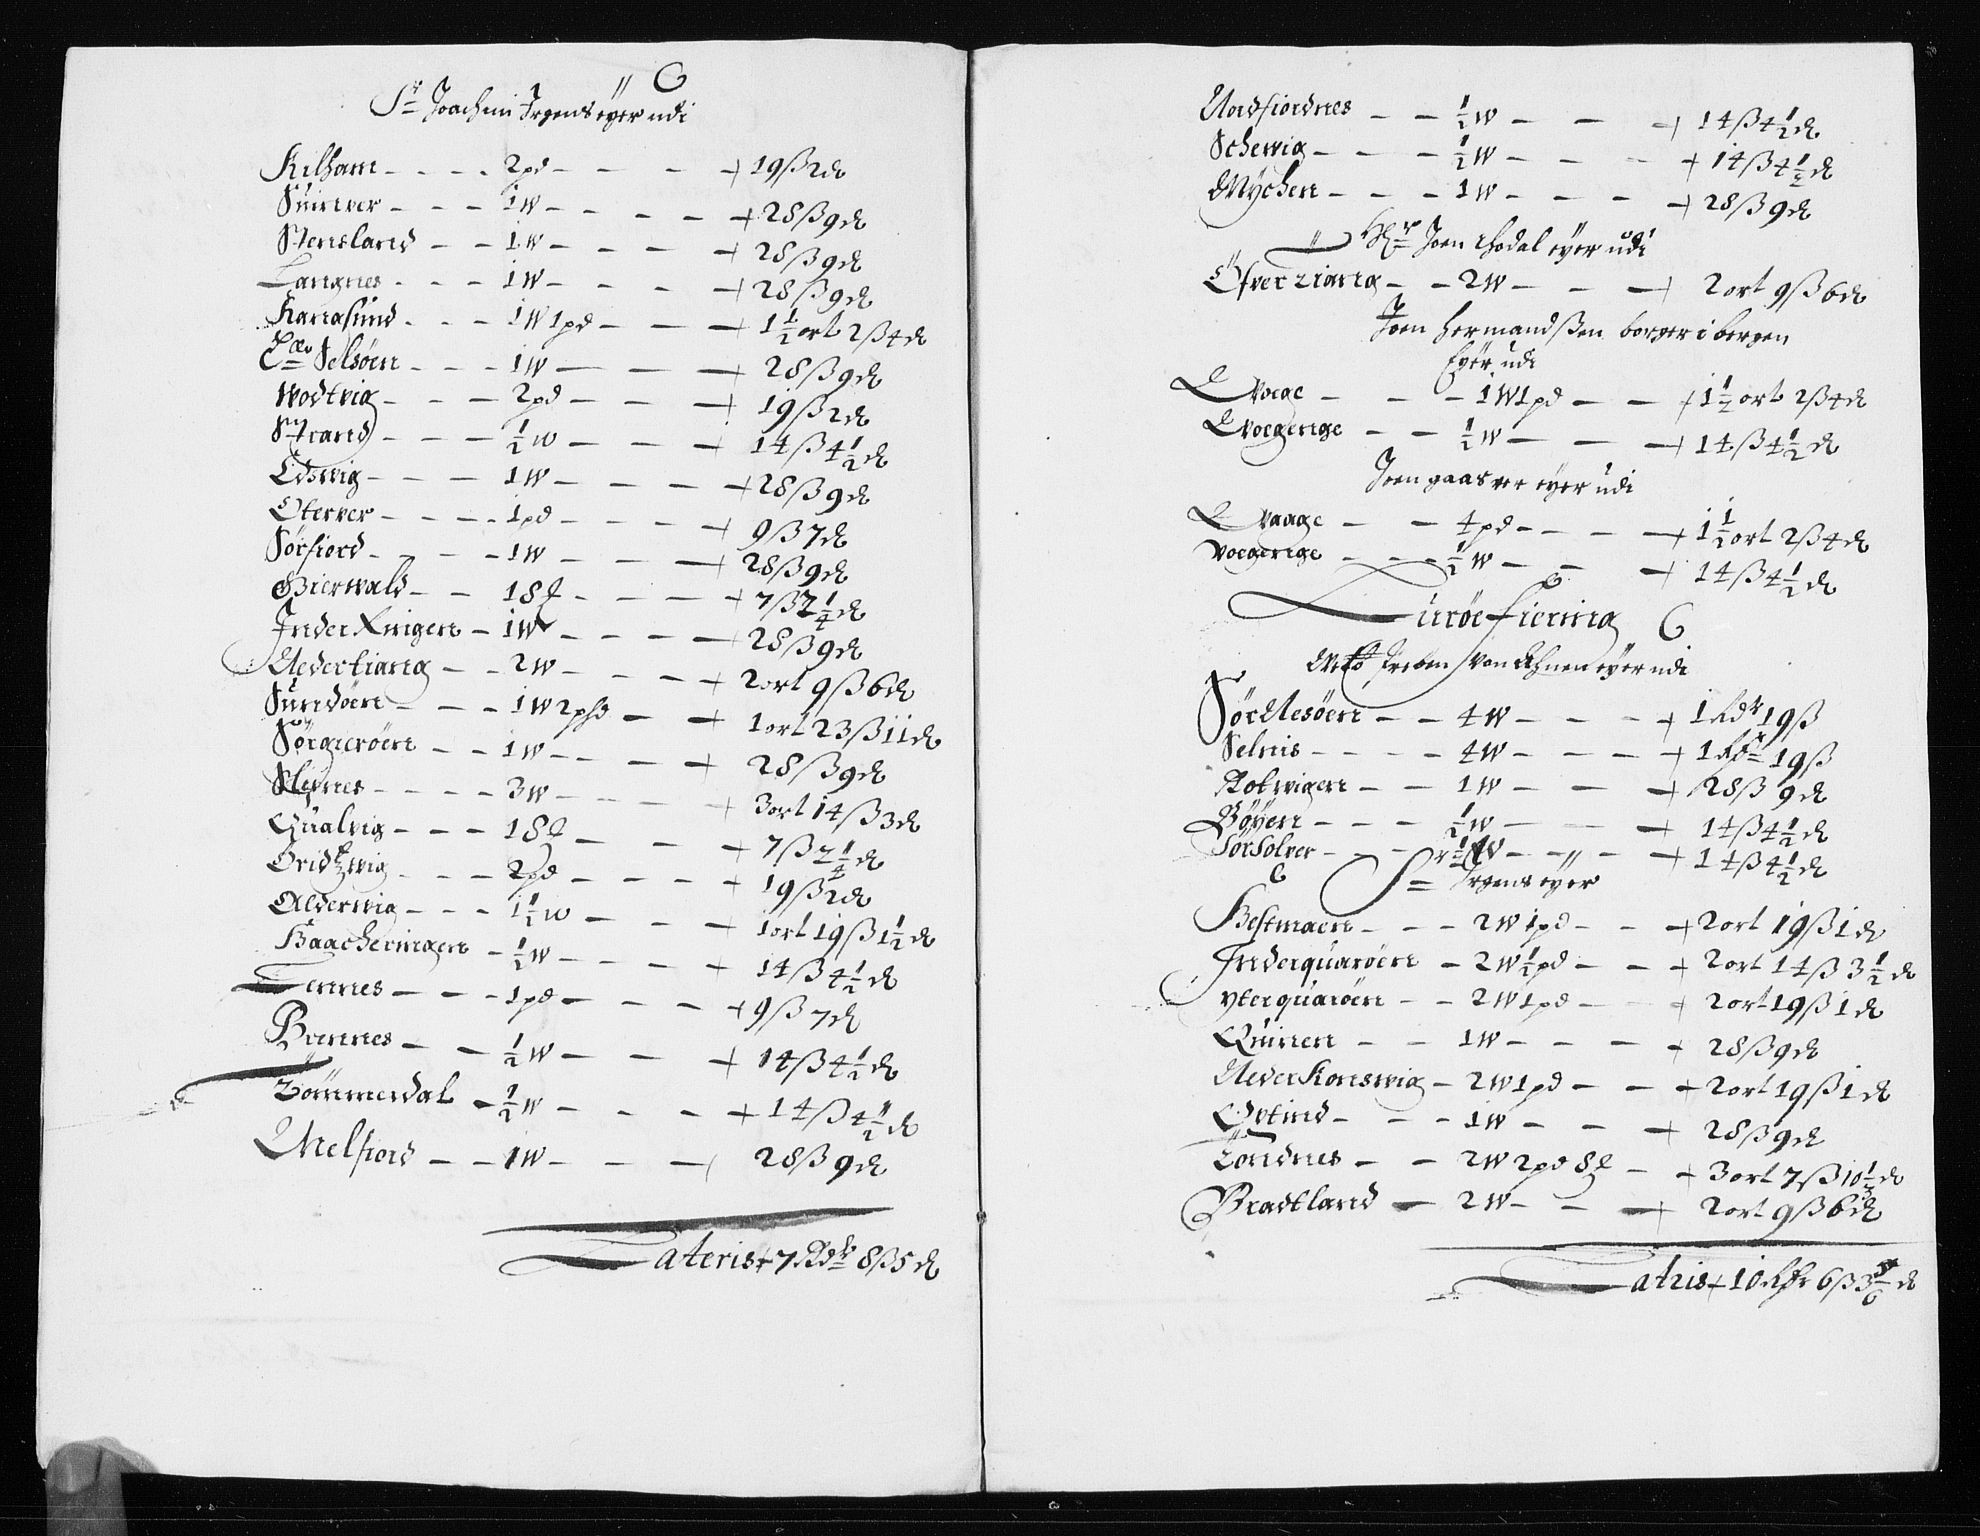 Sr Joachim Irgens eyer udi
Kilham - - - - 2pd - - - - 19ß2d
Suinver - - - 1W - - - - 28ß9d
Stensland - - 1W - - - - 28ß9d
Langnes - - - 1W - - - - 28ß9d
Kanasund - - - 1W 1pd - - - 1½ort 2ß4d
Selsöen - - - 1W - - - 28ß9d
Wodtvig - - - 2pd - - - 19ß2d
Strand - - - ½W - - - 14ß4½d
Edswig - - - 1W - - - 28ß9d
Oterver - - - - 1pd - - - 9ß7d
Sörfiord - - - - 1W - - - 28ß9d
Bierwald - - 18 - - - - 7ß2¼d
Inder Kuigen - 1W - - - - 28ß9d
Nedertiang - - 2W - - - - 2ort 9ß6d
Sundöen - - - 1W 2pd - - 1ort 23ß11d
Sörgieröen - - 1W - - - - 28ß9d
Slepnes - - - - 3W - - - - 3ort 14ß3d
Qualvig - - - 18 - - - - 7ß2¼d
Oridtzwig - - - 2pd - - - - 19ß2d
Alderwig - - - 1½W - - - - 1ort 19ß1½d
Haacheringen - ½W - - - - 14ß4½d
Tennes - - - 1pd - - - - 9ß7d
Brennes - - ½W - - - 14ß4½d
Tömmerdal - ½W - - - - 14ß4½d
Melfiord - - 1W - - - 28ß9d
Lateris 7 Rdr 8ß5d
Nordfiordnes - - ½W - - - 14ß4½d
Schewig - - - ½W - - - 14ß4½d
Mychen - - - 1W - - - - 28ß9d
Hr Joen Rodal eyer udi
Öfverziang - - 2W - - - 2ort 9ß6d
Joen Hermandßen borger i bergen
Eyer udi
Woege - - - 1W1pd - - 1½ort 2ß4d
Woegenge - - ½W - - - 14ß4½d
Joen gaasver eyer udi
Waage - - 4pd - - - - 1½ort 2ß4d
Woegenge - - - ½W - - - 14ß4½d
Luröe fiering
Preben Von Ahnen eyer udi
Sör Nesöen - - 4W - - - - 1 Rdr 19ß
Selnis - - - - 4W - - - - 1 Rdr 19ß
Kolwigen - - 1W - - - - 28ß9d
Böyen - - - ½W - - - 14ß4½d
Sörsolver - - - ½W - - - - 14ß4½d
Sr Irgens eyer
Hestmaen - - - 2W 1pd - - - 2ort 19ß1d
Inderquaröen - 2W ½pd - - - 2ort 14ß3½d
Yterquaröen - - 2W 1pd - - - 2ort 19ß1d
Quinen - - 1W - - - - 28ß9d
Neder Konswig - 2W 1pd - - - 2ort 19ß1d
Öxtind - - - 1W - - - 28ß9d
Tondnes - - 2W 2pd 8 - - 3ort 7ß10½d
Bradtland - 2W - - - 2ort 9ß6d
Latris 10 Rdr 6ß3 d